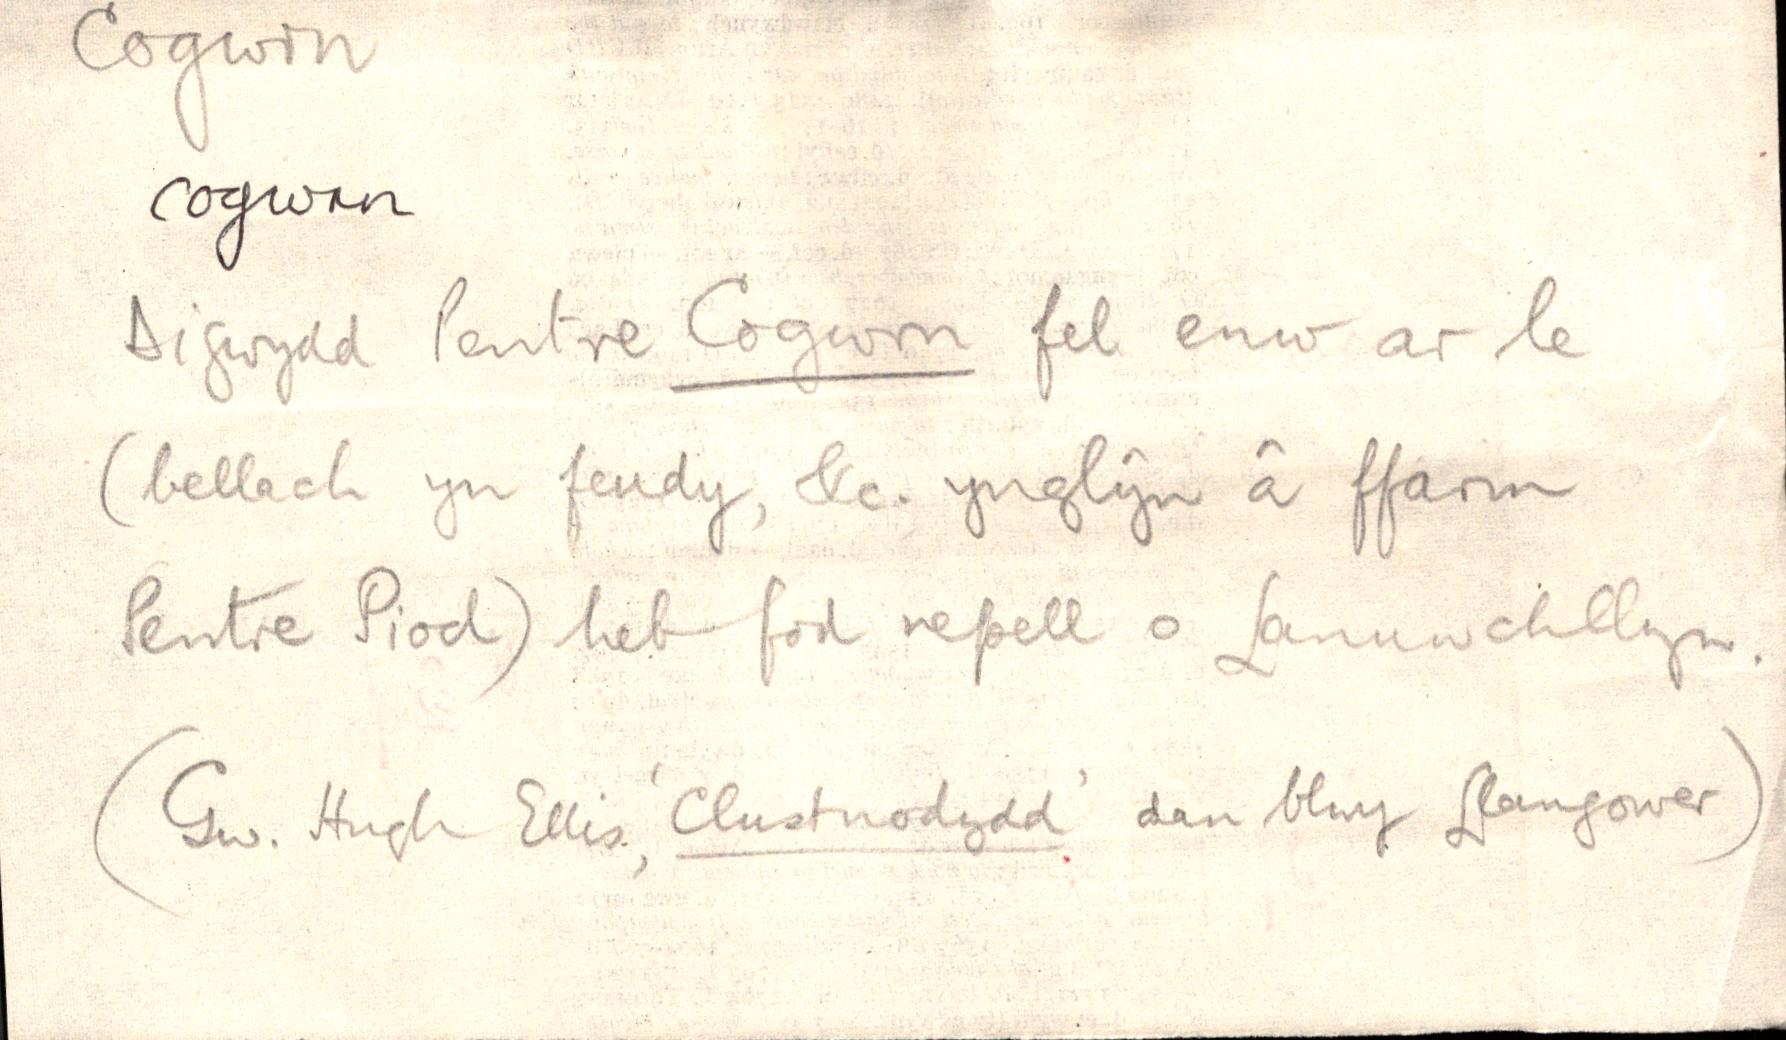 Cogwrn
cogwrn
Digwydd Pentre Cogwrn fel enw ar le
(bellach yn feudy, &c. ynglŷn â ffarm
Pentre Piod) heb fod nepell o Lanuwchllyn.
(Gw. Hugh Ellis, 'Clustnodydd' dan blwy Llangower)